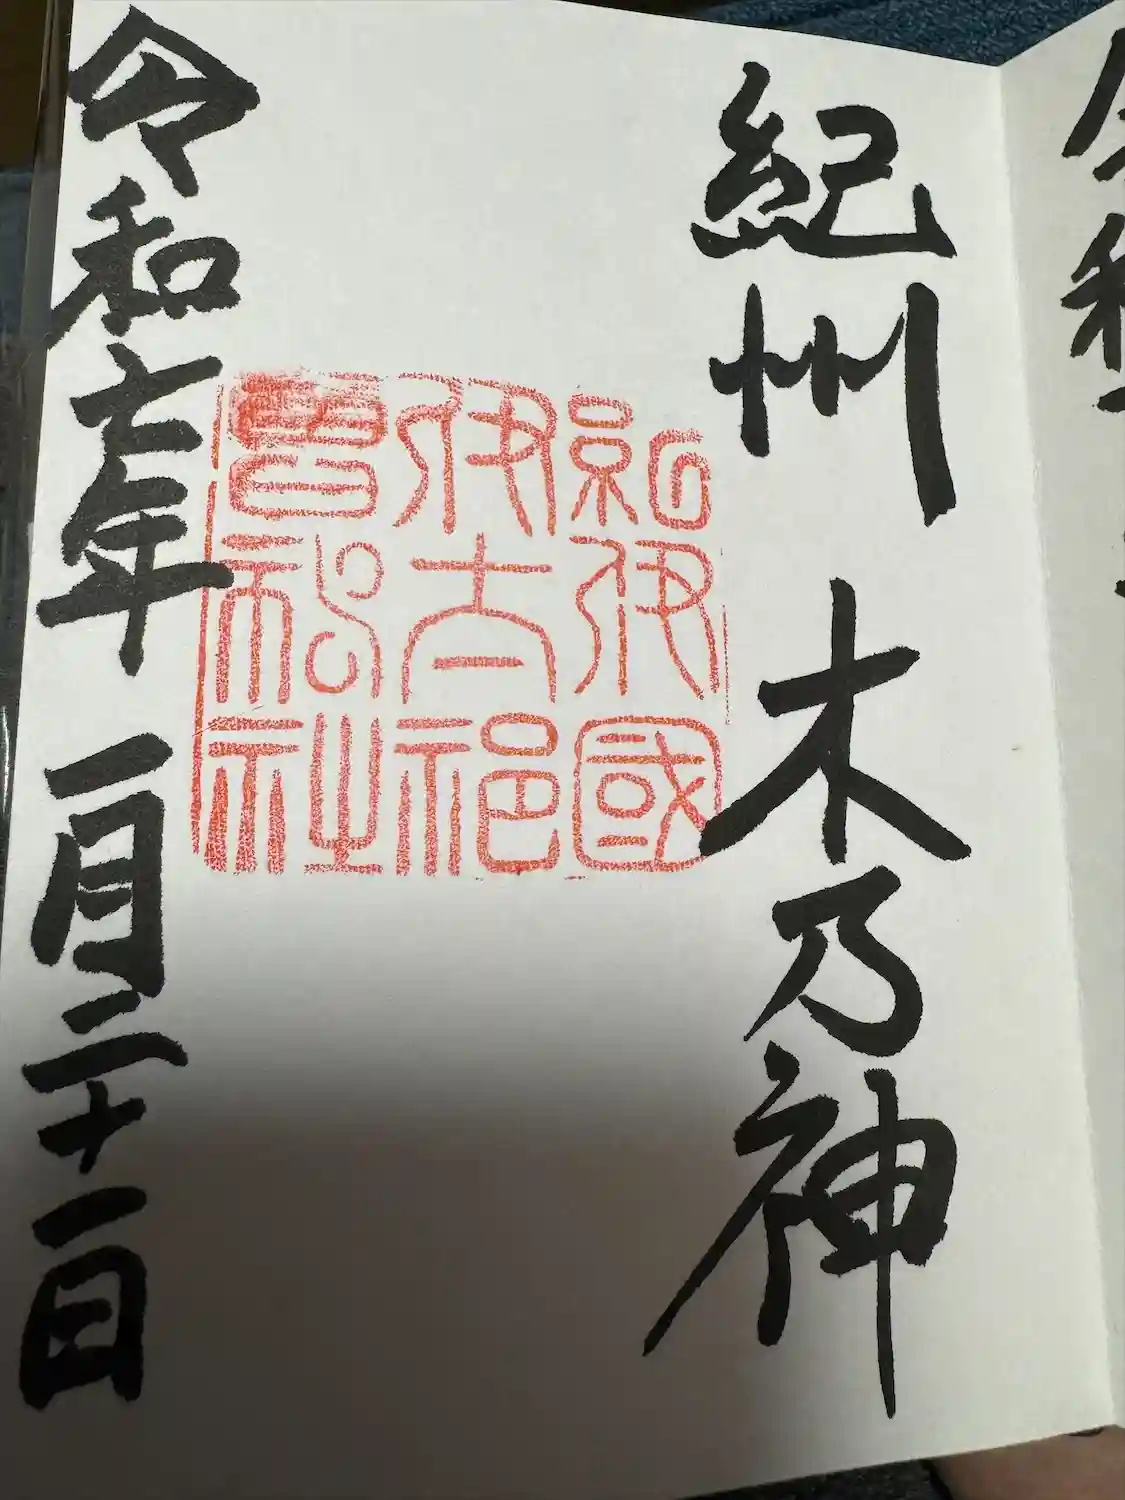 令和
紀州 木乃神
紀伊國
伊太祁
曾神社
令和七年 一月二十一日